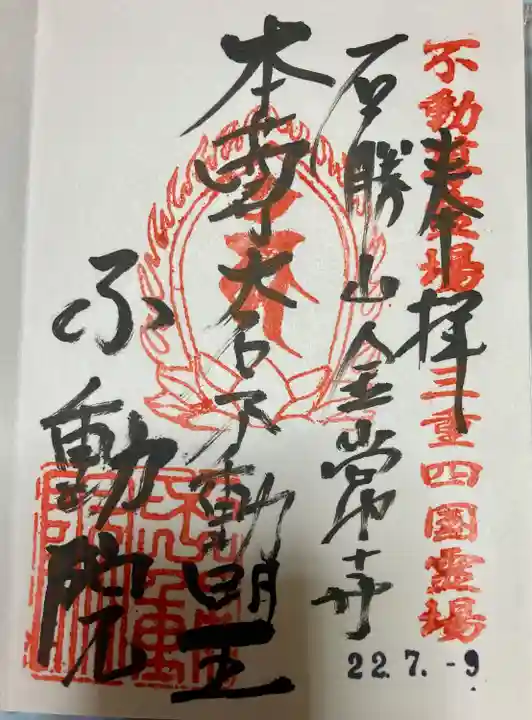 不動尊霊場
三重四国霊場
奉拝
石勝山金常寺
本尊大聖不動明王
不動院
22.7.-9